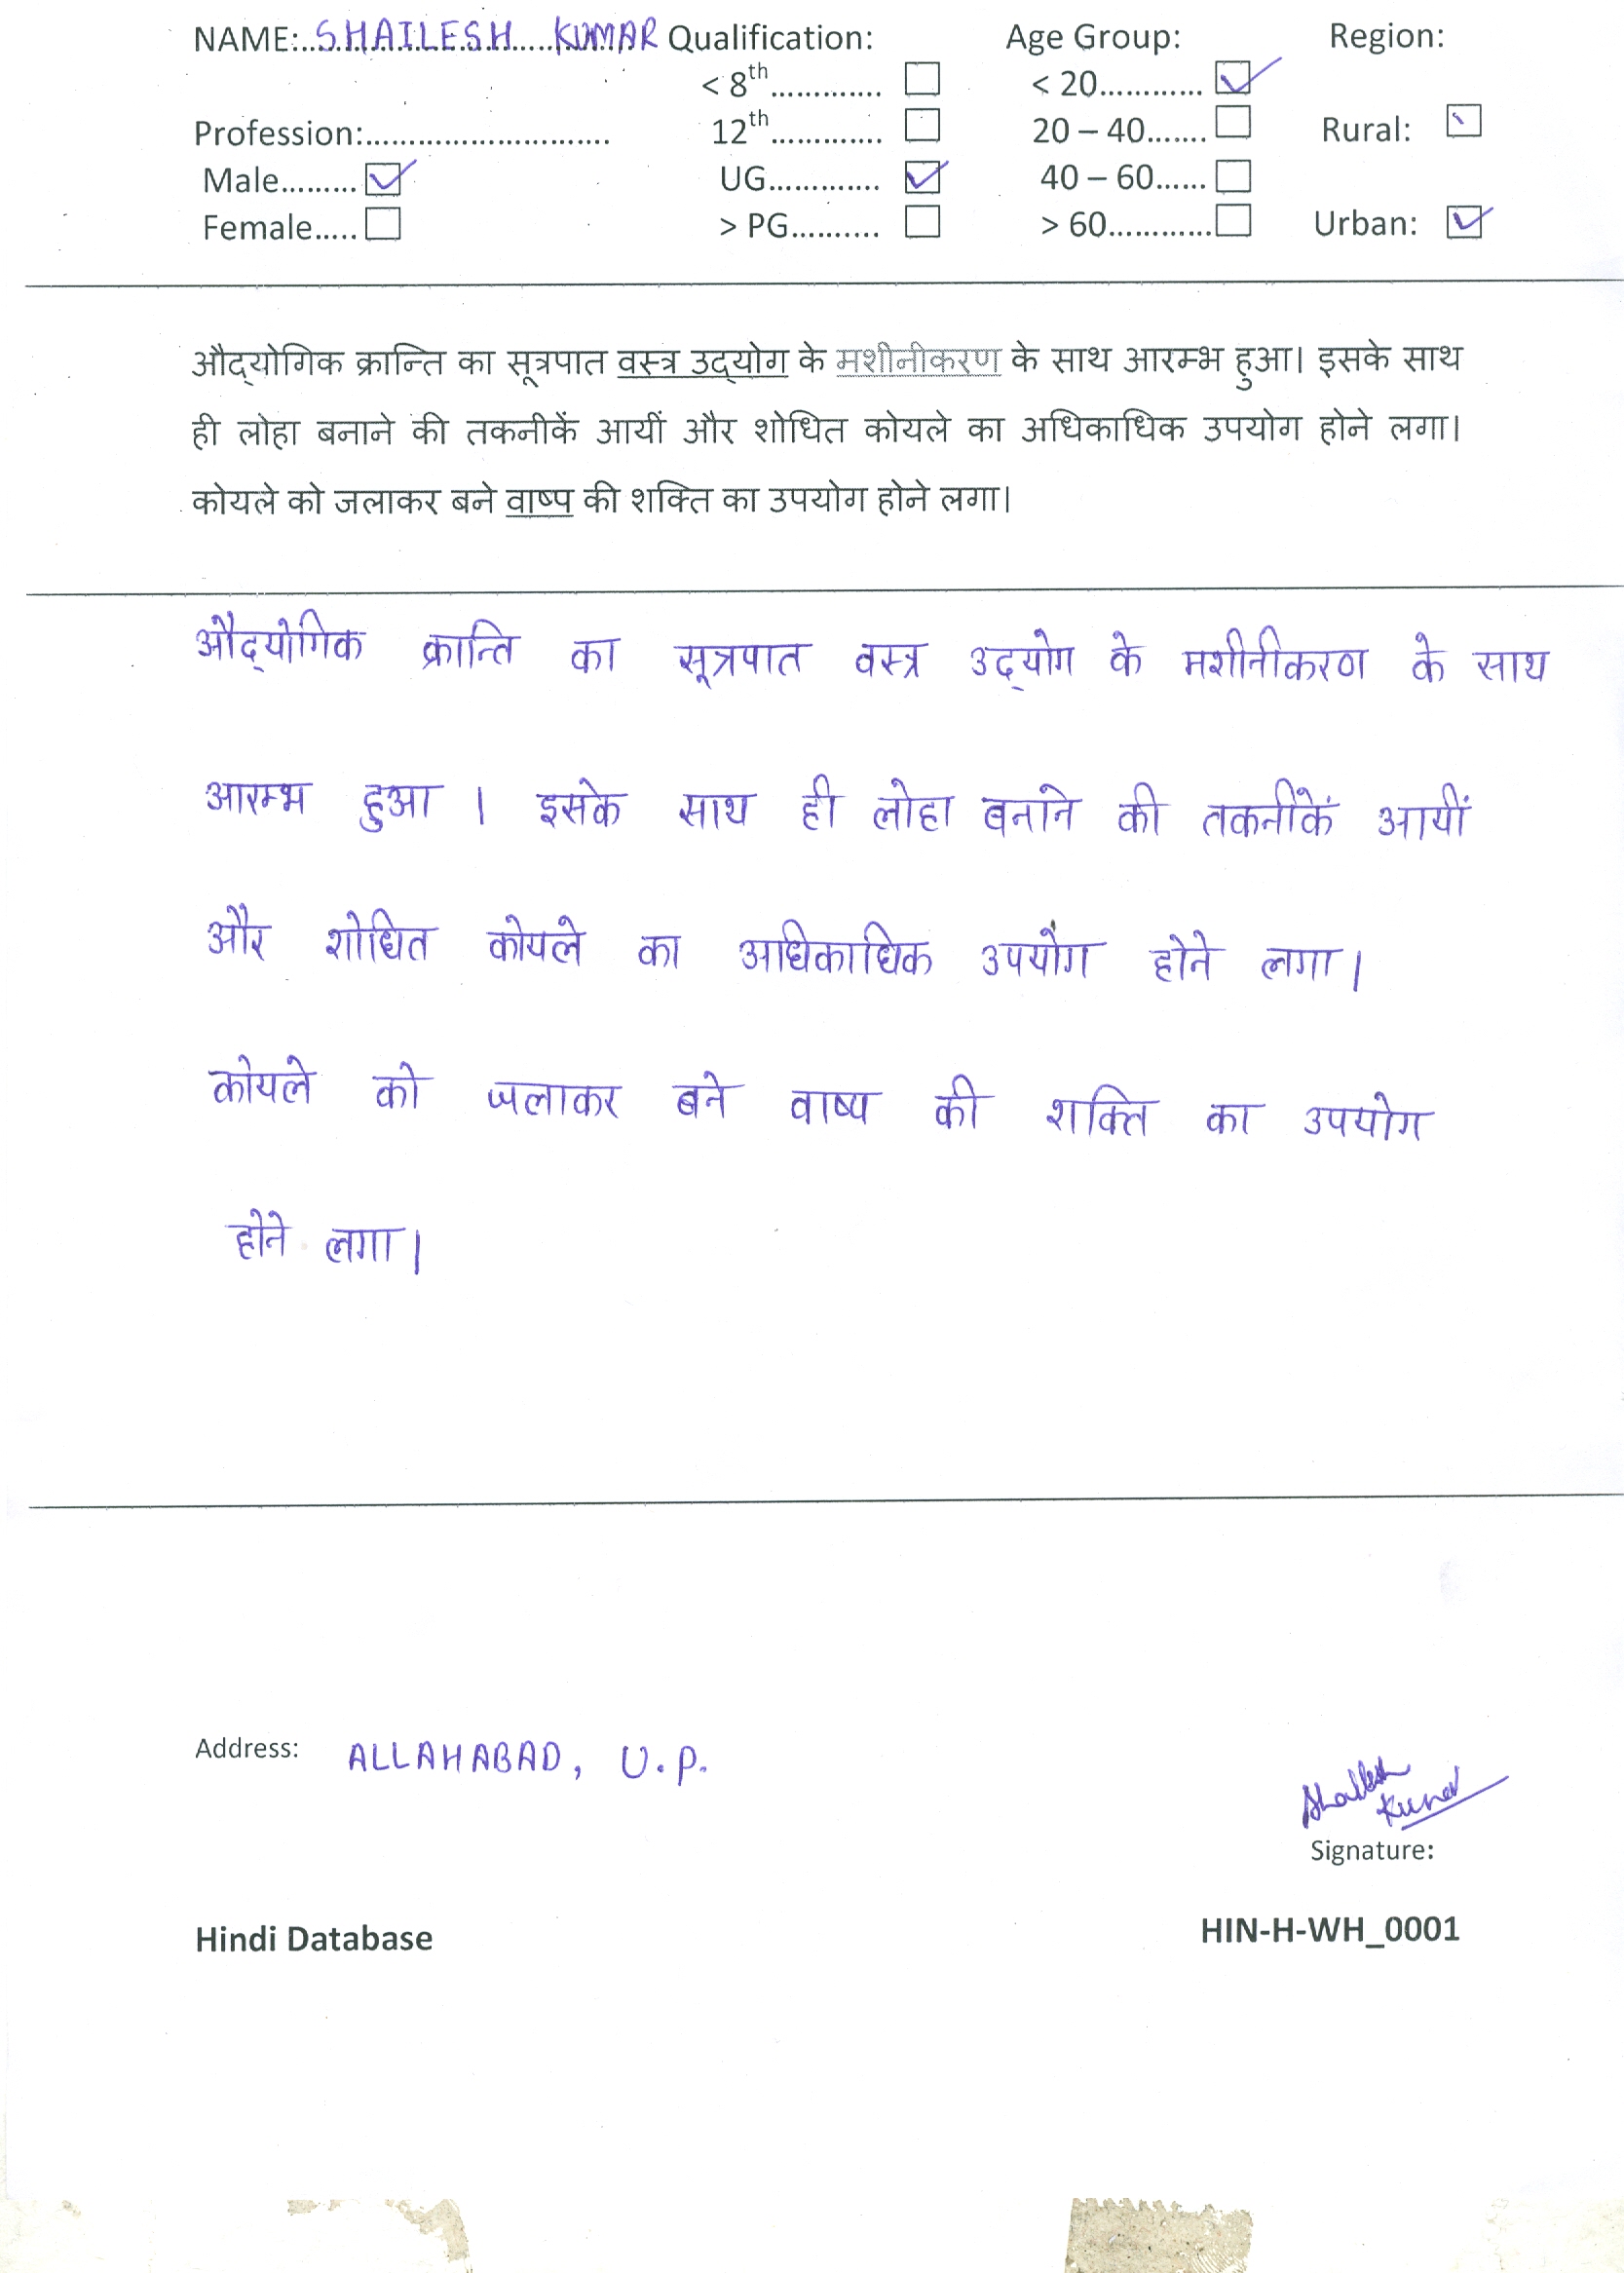 NAME:..SHAILESH....KUMAR Qualification: Age Group: Region:
< 8th............. < 20............
Profession:............................ 12th............. 20 – 40....... Rural:
Male......... UG............. 40 – 60......
Female..... > PG.......... > 60............ Urban:
औद्योगिक क्रान्ति का सूत्रपात वस्त्र उद्योग के मशीनीकरण के साथ आरम्भ हुआ। इसके साथ
ही लोहा बनाने की तकनीकें आयीं और शोधित कोयले का अधिकाधिक उपयोग होने लगा।
कोयले को जलाकर बने वाष्प की शक्ति का उपयोग होने लगा।
औद्योगिक क्रान्ति का सूत्रपात वस्त्र उद्योग के मशीनीकरण के साथ
आरम्भ हुआ । इसके साथ ही लोहा बनाने की तकनीकें आयीं
और शोधित कोयले का अधिकाधिक उपयोग होने लगा।
कोयले को जलाकर बने वाष्प की शक्ति का उपयोग
होने लगा।
Address: ALLAHABAD, U.P.
Shailesh
Kumar
Signature:
Hindi Database HIN-H-WH_0001